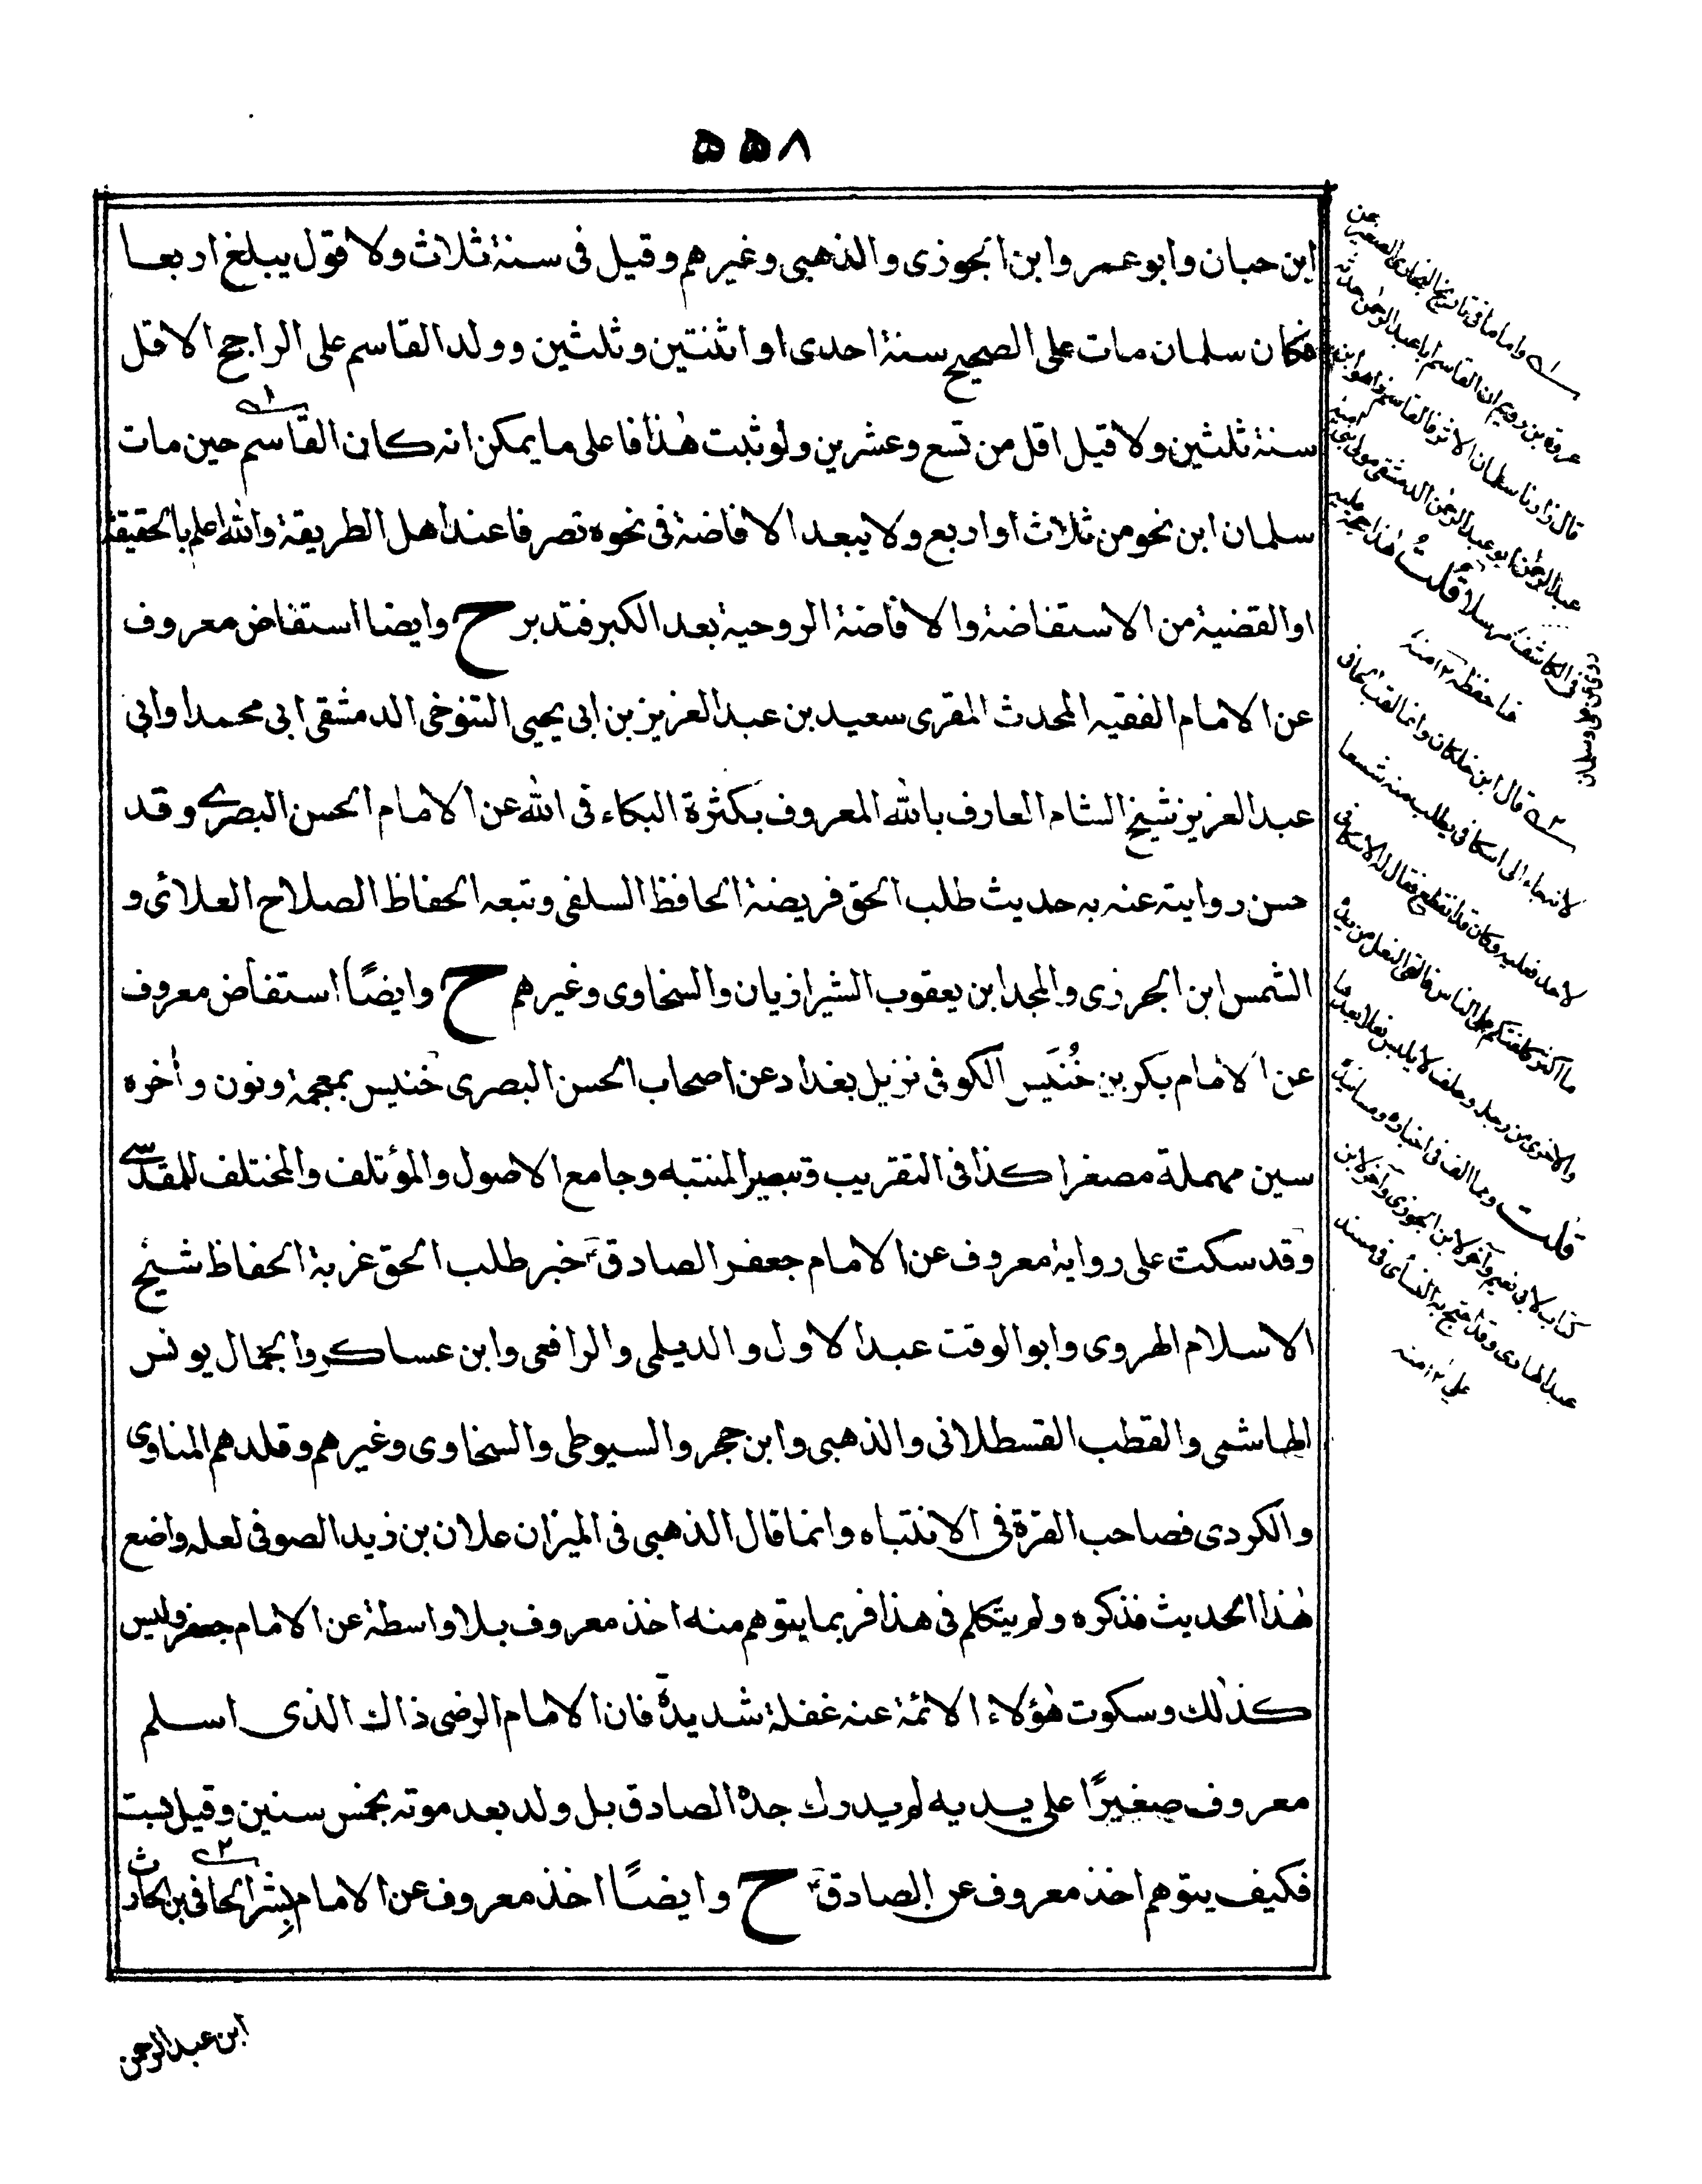 ۵۵۸
ابن حبان وابو عمر وابن الجوزی والذهبی وغیرهم وقیل فی سنة ثلاث ولا قول یبلغ اربعا
فکان سلمان مات علی الصحیح سنة احدی او اثنتین وثلثین وولد القاسم علی الراجح الاقل
سنة ثلثین ولا قیل اقل من تسع وعشرین ولو ثبت هٰذا فاعلی ما یمکن انه کان القاسم حین مات
سلمان ابن نحو من ثلاث او اربع ولا یبعد الافاضة فی نحوه تصرفا عند اهل الطریقة والله اعلم بالحقیقة
او القضیة من الاستفاضة والافاضة الروحیة بعد الکبر فتدبر ح وایضا استفاض معروف
عن الامام الفقیه المحدث المقری سعید بن عبد العزیز بن ابی یحیی التنوخی الدمشقی ابی محمد اوابی
عبد العزیز شیخ الشام العارف بالله المعروف بکثرة البکاء فی الله عن الامام الحسن البصری وقد
حسن روایته عنه به حدیث طلب الحق فریضة الحافظ السلفی وتبعه الحفاظ الصلاح العلائی و
الشمس ابن الجزری والمجد ابن یعقوب الشیرازیان والسخاوی وغیرهم ح وایضًا استفاض معروف
عن الامام بکر بن خُنَیس الکوفی نزیل بغداد عن اصحاب الحسن البصری خنیس بمعجمة ونون واٰخره
سین مهملة مصغرا کذا فی التقریب وتبصیر المنتبه وجامع الاصول والمؤتلف والمختلف للمقدسی
وقد سکت علی روایة معروف عن الامام جعفر الصادق خبر طلب الحق غربة الحفاظ شیخ
الاسلام الهروی وابو الوقت عبد الاول والدیلمی والرافعی وابن عساکر والجمال یونس
الهاشمی والقطب القسطلانی والذهبی وابن حجر والسیوطی والسخاوی وغیرهم وقلدهم المناوی
والکردی فصاحب القرة فی الانتباه وانما قال الذهبی فی المیزان علان بن زید الصوفی لعله واضع
هٰذا الحدیث فذکره ولم یتکلم فی هذا فربما یتوهم منه اخذ معروف بلا واسطة عن الامام جعفر ولیس
کذلك وسکوت هٰؤلاء الائمة عنه غفلة شدیدة فان الامام الرضی ذاك الذی اسلم
معروف صغیرًا علی یدیه لم یدرك جده الصادق بل ولد بعد موته بخمس سنین وقیل بست
فکیف یتوهم اخذ معروف عن الصادق ح وایضًا اخذ معروف عن الامام بِشر الحافی بن الحارث
ابن عبد الرحمن
واما ما فی تاریخ البخاری الصغیر عن
عروة بن رویم ان القاسم ابا عبد الرحمٰن حدثه
قال زارنا سلمان الاثر فالقاسم هذا هو ابن
عبد الرحمٰن ابو عبد الرحمٰن الدمشقی مولی بنی امیة
فی الکاشف مرسلا قلتُ هٰذا
فاحفظه ۱۲ منه
قال ابن خلکان وانما لقب بالحافی
لانه جاء الی اسکافی یطلب منه شسعا
لاحد نعلیه وکان قد انقطع فقال له الاسکافی
ما اکثر کلفتکم علی الناس فالقی النعل من یده
والاخری من رجله وحلف لا یلبس نعلا بعدها
قلت ومما الف فی اخباره ومسانیده
کتاب لابی نعیم واٰخر لابن الجوزی واٰخر لابن
عبد الهادی وقد احتج به النسائی فی مسند
علی ۱۲ منه